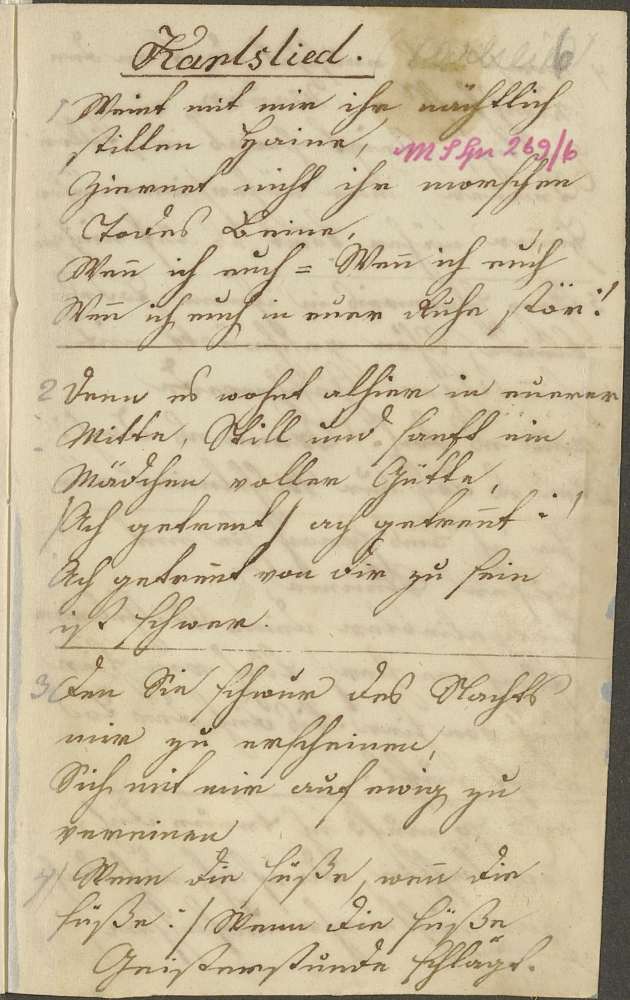 Karlslied.
6
1 Weint mit mir ihr nächtlich
stillen Haine,
M S Gr 269/6
Zürnet nicht ihr morschen
Todes Beine,
Wen̄ ich euch = Wen̄ ich euch
Wen̄ ich euch in euer Ruhe stör:!
2 Denn es wohnt alhier in euerer
Mitte, Still und sanft ein
Mädchen voller Gütte,
/Ach getrent/ ach getren̄t :!
Ach getrent von dir zu sein
ist schwer.
3 Den Sie schwur des Nachts
mir zu erscheinen,
Sich mit mir auf ewig zu
vereinen
4 Wenn die süße, wen̄ die
süße :/ Wenn die süße
Geisterstunde schlägt.